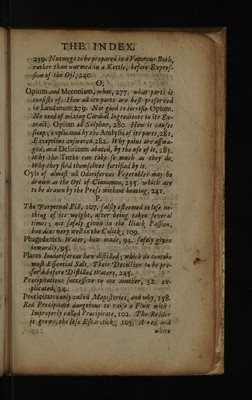 THE INDEX.
239. Nutmegs to be prepared in a Vaporous Bath,
rather than warmed in a Kettle, before Expres-
sion of the Oyl, 240.
O.
Opium and Meconium, what, 277. what parts it
consists of. How all its parts are best preserved
in Laudanum, 279. Not good to torrifie Opium.
No need of mixing Cordial Ingredients in its Ex-
tract; Opium all Sulphur, 280. How it causes
sleep; explicated by the Analysis of its parts, 281.
Exceptions answered, 282. Why pains are asswa-
ged, and Deliriums abated, by the use of it, 283.
Why the Turks can take so much as they do,
Why they find themselves fortified by it.
Oyls of almost all Odoriferous Vegetables may be
drawn as the Oyl of Cinnamon, 235. which are
to be drawn by the Press without heating, 241.
P.
The Perpetual Pill, 107. falsly esteemed to lose no-
thing of its weight, after being taken several
times; not safely given in the Iliack Passion,
but does very well in the Colick, 109.
Phagedenick Water, how made, 94. safely given
inwardly, 95.
Plants Inodoriferous how distilled; which do contain
most Essential Salt. Their Decoction to be pre-
fer'd before Distilled Waters, 245.
Precipitations successive to one another, 32. ex-
plicated, 34.
Precipitates only called Magisteries, and why, 158.
Red Precipitate dangerous to raise a Flux with:
Improperly called Precipitate, 102. The Redder
it grows, the less Escarotick, 103. A red and
white